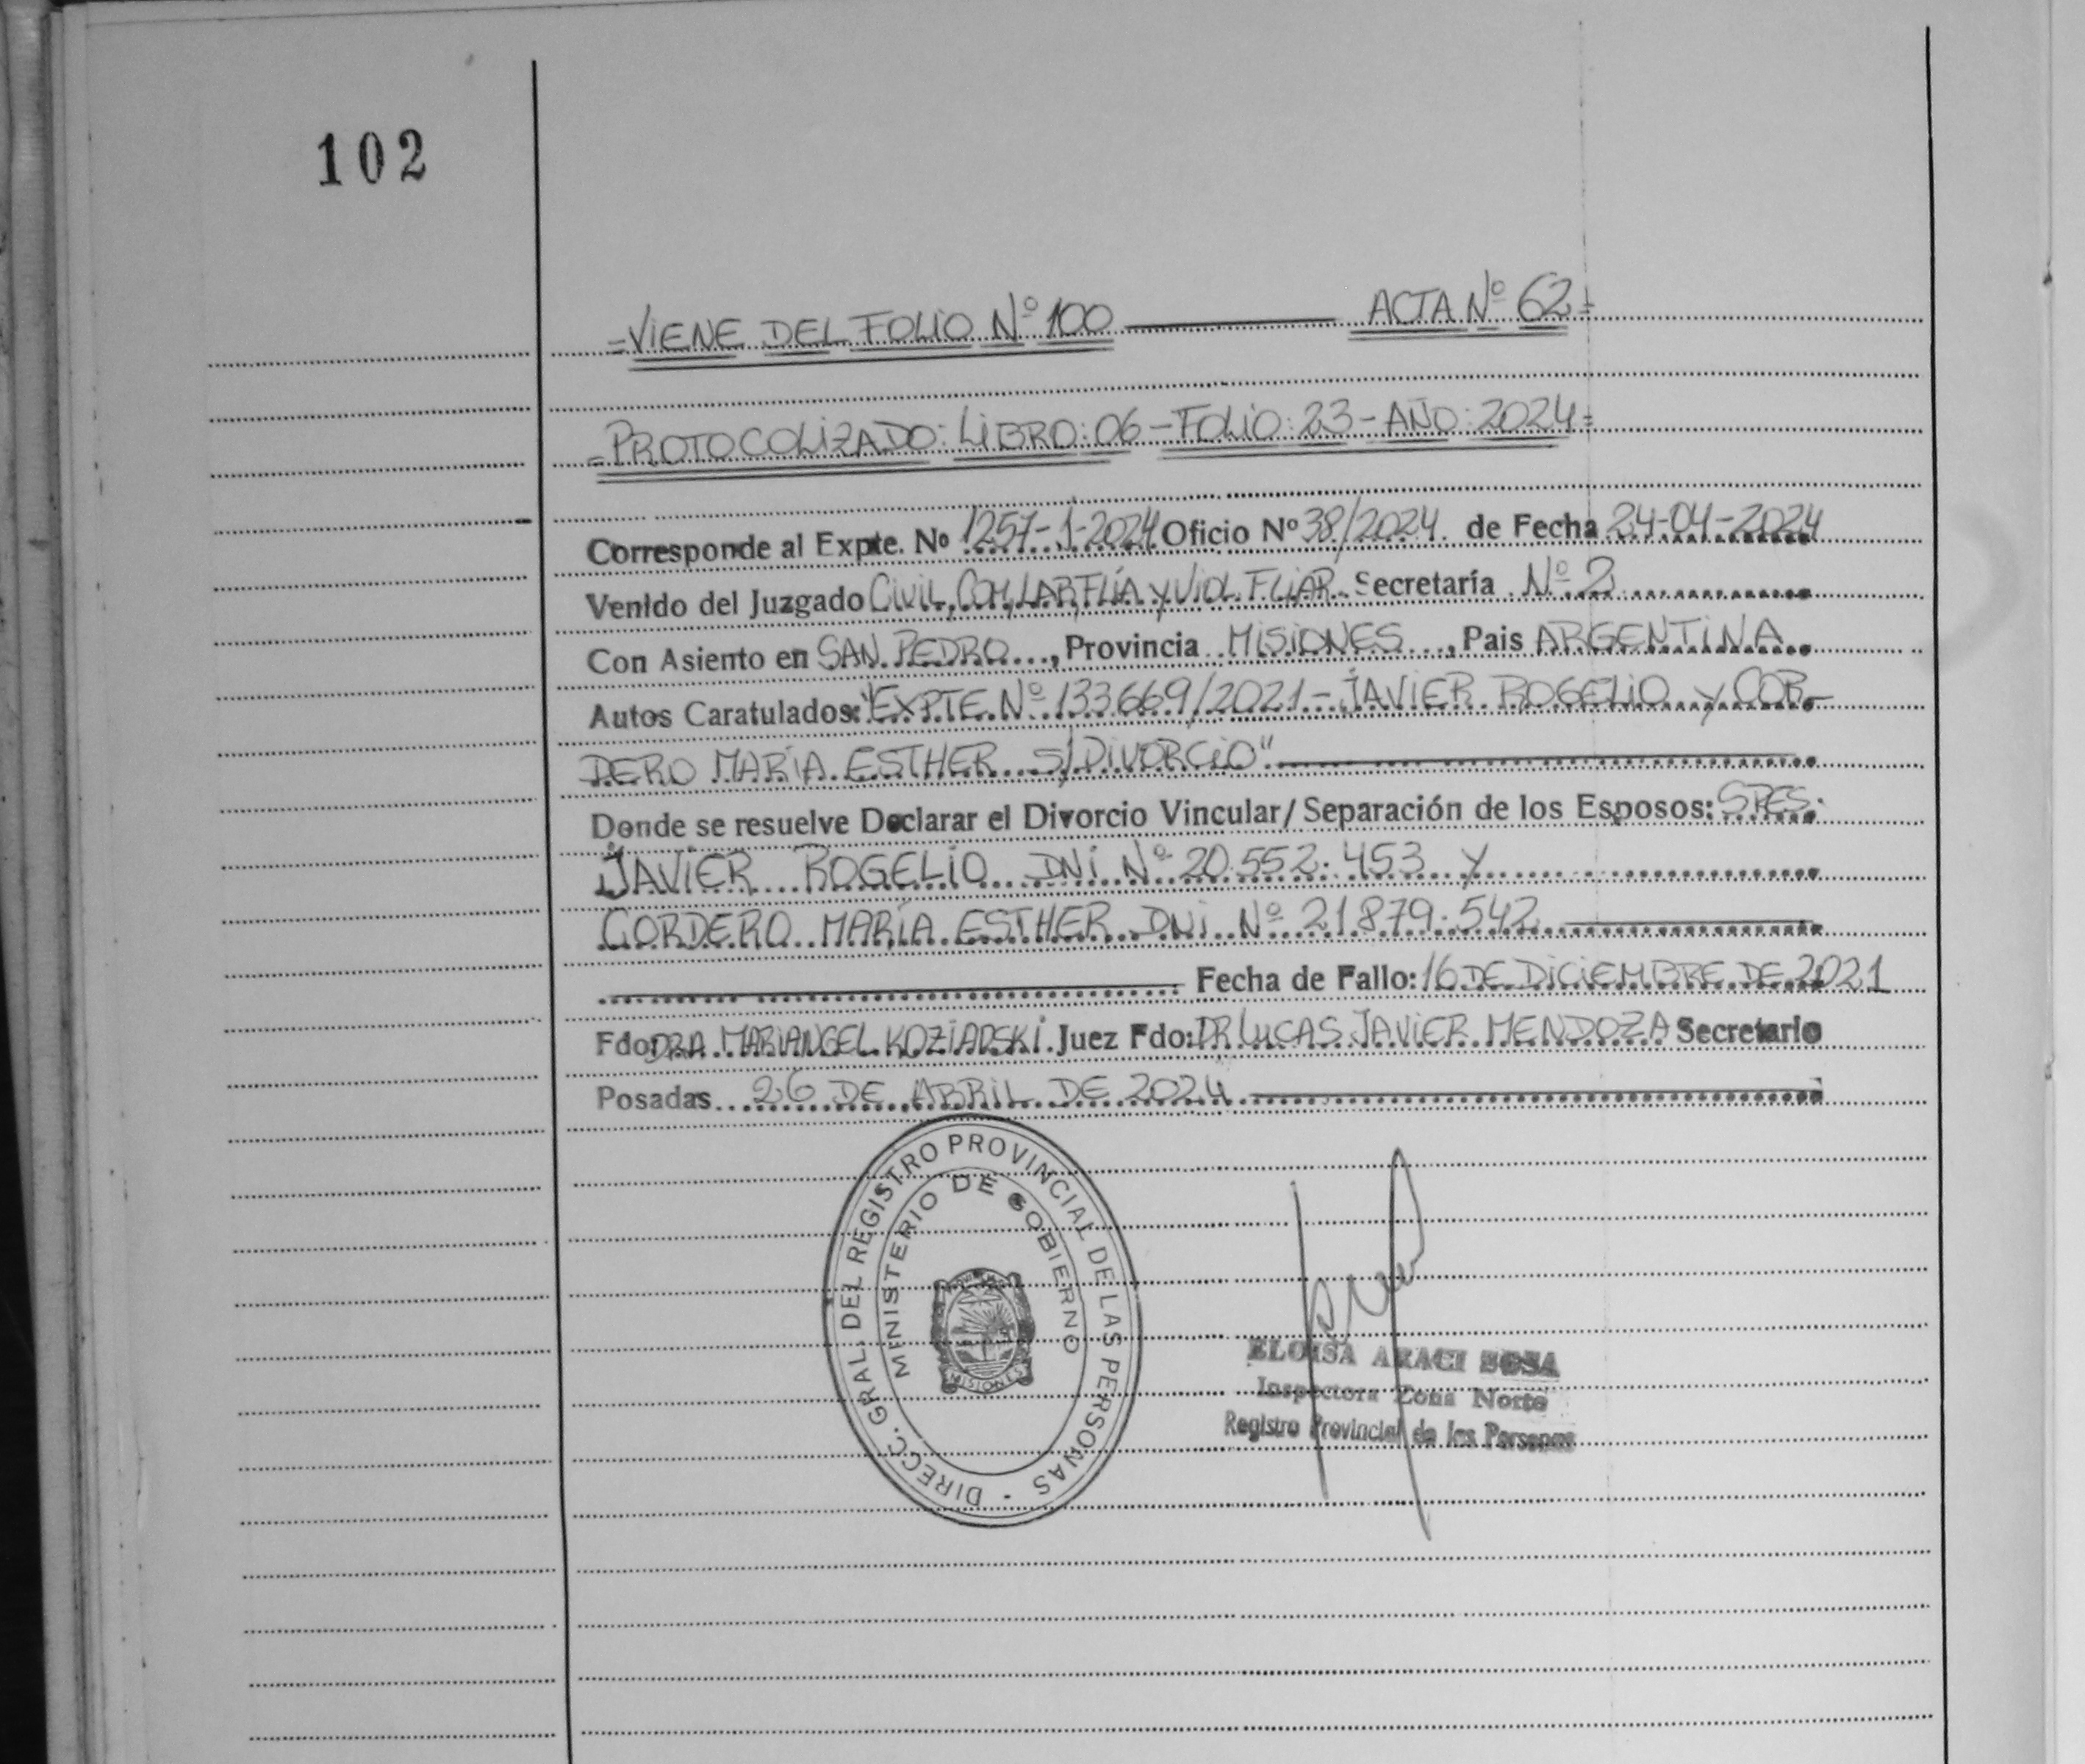 102
=VIENE DEL FOLIO Nº 100 ACTA Nº 62=
=PROTOCOLIZADO: LIBRO: 06 - FOLIO: 23 - AÑO: 2024=
Corresponde al Expte. Nº 1257-1-2024 Oficio Nº 38/2024 de Fecha 24-04-2024
Venido del Juzgado CIVIL, COM, LAB, FLÍA Y VIOL. FLIAR. Secretaría Nº 2
Con Asiento en SAN PEDRO, Provincia MISIONES, Pais ARGENTINA
Autos Caratulados: "EXPTE Nº 133669/2021 - JAVIER ROGELIO Y COR-
DERO MARÍA ESTHER S/DIVORCIO"
Donde se resuelve Declarar el Divorcio Vincular/Separación de los Esposos: SRES.
JAVIER ROGELIO DNI Nº 20.552.453 Y
CORDERO MARÍA ESTHER DNI Nº 21.879.542
Fecha de Fallo: 16 DE DICIEMBRE DE 2021
Fdo: DRA MARIANGEL KOZIARSKI Juez Fdo: DR LUCAS JAVIER MENDOZA Secretario
Posadas 26 DE ABRIL DE 2024
DIRECC. GRAL. DEL REGISTRO PROVINCIAL DE LAS PERSONAS -
MINISTERIO DE GOBIERNO
MISIONES
ELOISA ARACI SOSA
Inspectora Zona Norte
Registro Provincial de las Personas